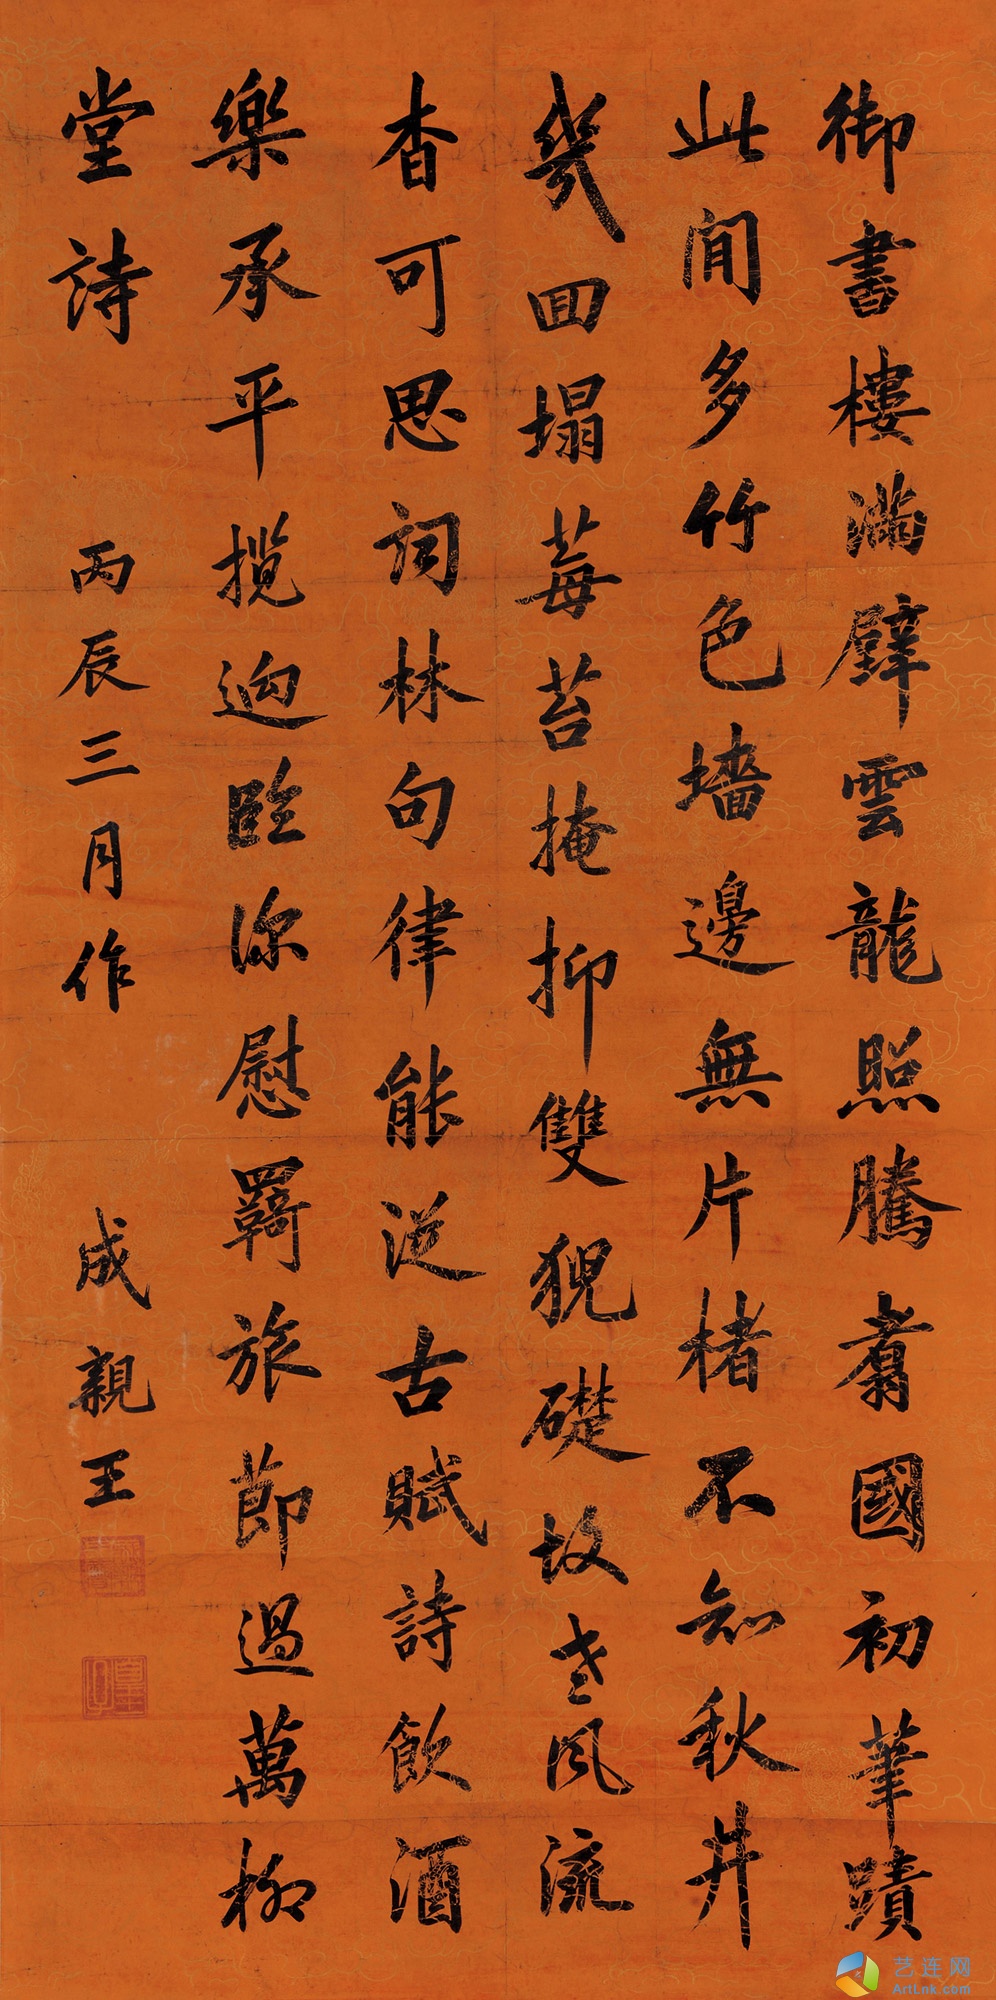 御書樓滿壁雲龍照騰翥國初筆蹟
此间多竹色墻邊無片楮不知秋井
幾回塌莓苔掩抑雙猊礎故老風流
杳可思词林句律能逆古賦詩飲酒
樂承平揽迥臨深慰羇旅節過萬柳
堂詩 丙辰三月作 成親王
艺连网
ArtLnk.com